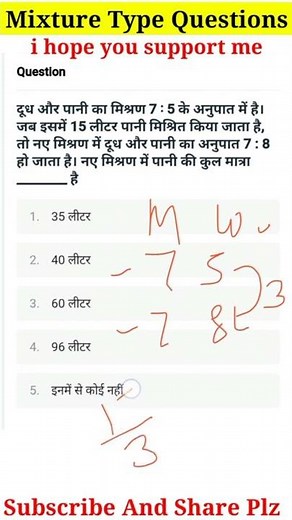 Mixture Type Questions
i hope you support me
Question
दूध और पानी का मिश्रण 7 : 5 के अनुपात में है।
जब इसमें 15 लीटर पानी मिश्रित किया जाता है,
तो नए मिश्रण में दूध और पानी का अनुपात 7 : 8
हो जाता है। नए मिश्रण में पानी की कुल मात्रा
_______ है
1. 35 लीटर
M W
2. 40 लीटर
- 7 5
3
3. 60 लीटर
- 7 8
4. 96 लीटर
5. इनमें से कोई नहीं
1/3
Subscribe And Share Plz